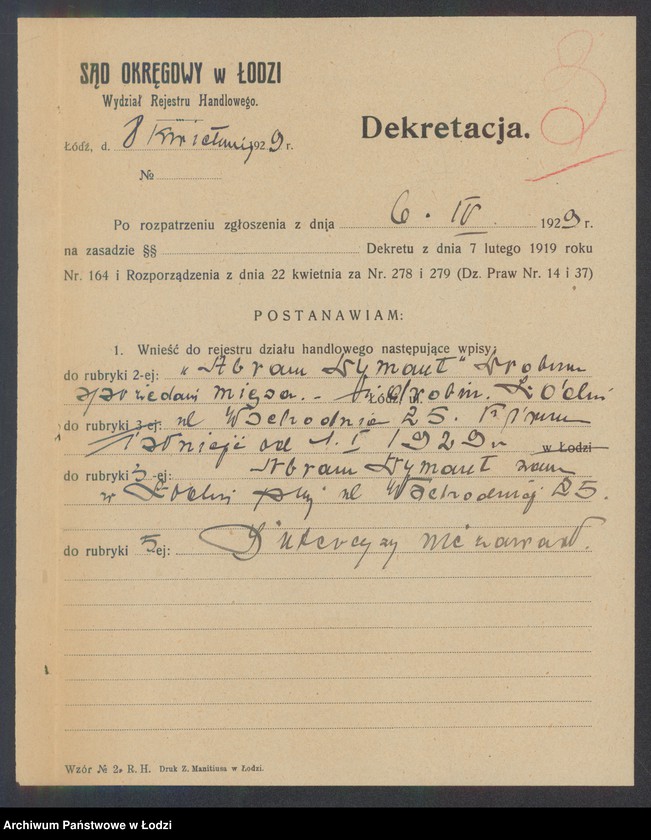 SĄD OKRĘGOWY w ŁODZI
Wydział Rejestru Handlowego.
Dekretacja.
Łódź, d. 8 Kwietnia 1929 r.
№
Po rozpatrzeniu zgłoszenia z dnia 6. IV 1929 r.
na zasadzie §§ Dekretu z dnia 7 lutego 1919 roku
Nr. 164 i Rozporządzenia z dnia 22 kwietnia za Nr. 278 i 279 (Dz. Praw Nr. 14 i 37)
POSTANAWIAM:
1. Wnieść do rejestru działu handlowego następujące wpisy:
do rubryki 2-ej: „Abram Dymant"
sprzedaż mięsa. - Łódź
do rubryki 3-ej: ul Wschodnia 25.
istnieje od 1. I 1929 r w Łodzi
do rubryki 3-ej: Abram Dymant zam
w Łodzi przy ul Wschodniej 25.
do rubryki 5ej: Intercyzy nie zawarł.
Wzór № 2, R. H. Druk Z. Manitiusa w Łodzi.
Archiwum Państwowe w Łodzi